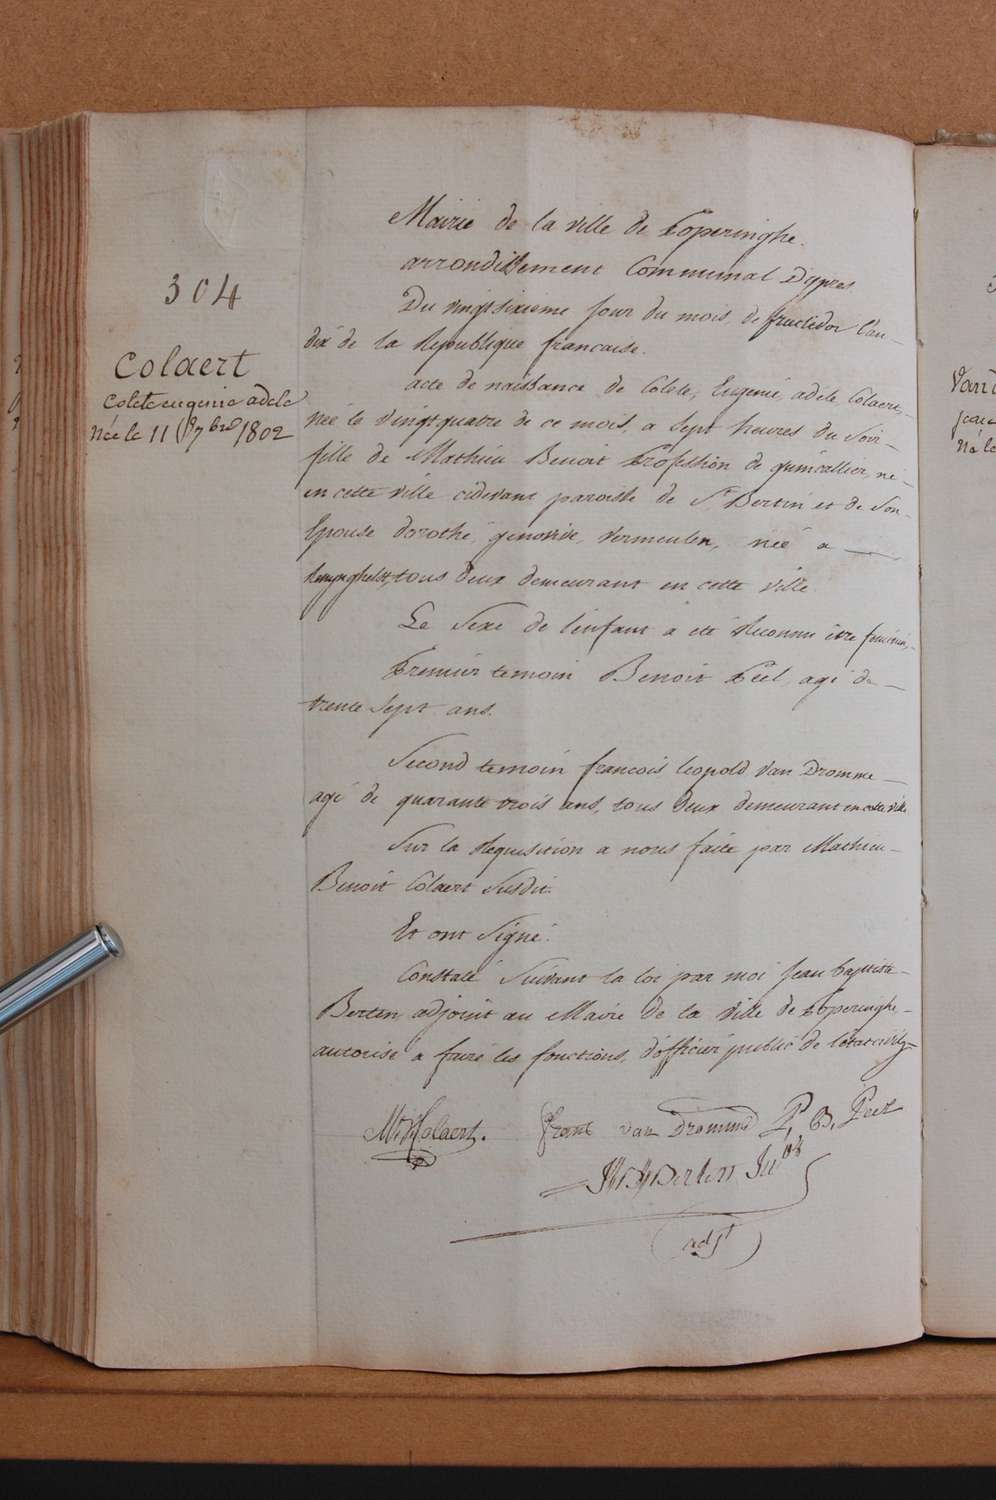 304
Colaert
Colete eugenie adele
Née le 11 7bre 1802
Mairie de la ville de Poperinghe.
arrondissement Communal Dypres
Du vingtsixieme Jour du mois de fructidor l'an
dix de la Republique francaise.
acte de naissance de Colete, Eugenie, adele Colaert,
née le vingtquatre de ce mois, a sept heures du Soir
fille de Mathieu Benoit Profession de quincallier, né
en cette ville cidevant paroisse de St Bertin et de Son
Epouse dorothé, genovive, Vermeulen, née a
Renynghelst, tous deux demeurant en cette ville
Le Sexe de l'enfant a eté Reconnu etre feminin,
Premier temoin Benoit Peel, agé de
trente Sept ans.
Second temoin francois leopold Van Dromme
agé de quarante trois ans, tous deux demeurant en cette ville
Sur la Requisition a nous faite par Mathieu
Benoit Colaert Susdit.
Et ont Signé.
Constaté Suivant la loi par moi Jean baptiste
Berten adjoint au Maire de la Ville de Poperinghe
autorisé a faire les fonctions, d'officier public de l'etat civil
Colaert. Frans van Dromme P. B. Peel
Berten
adjt
Van
jean
Né le